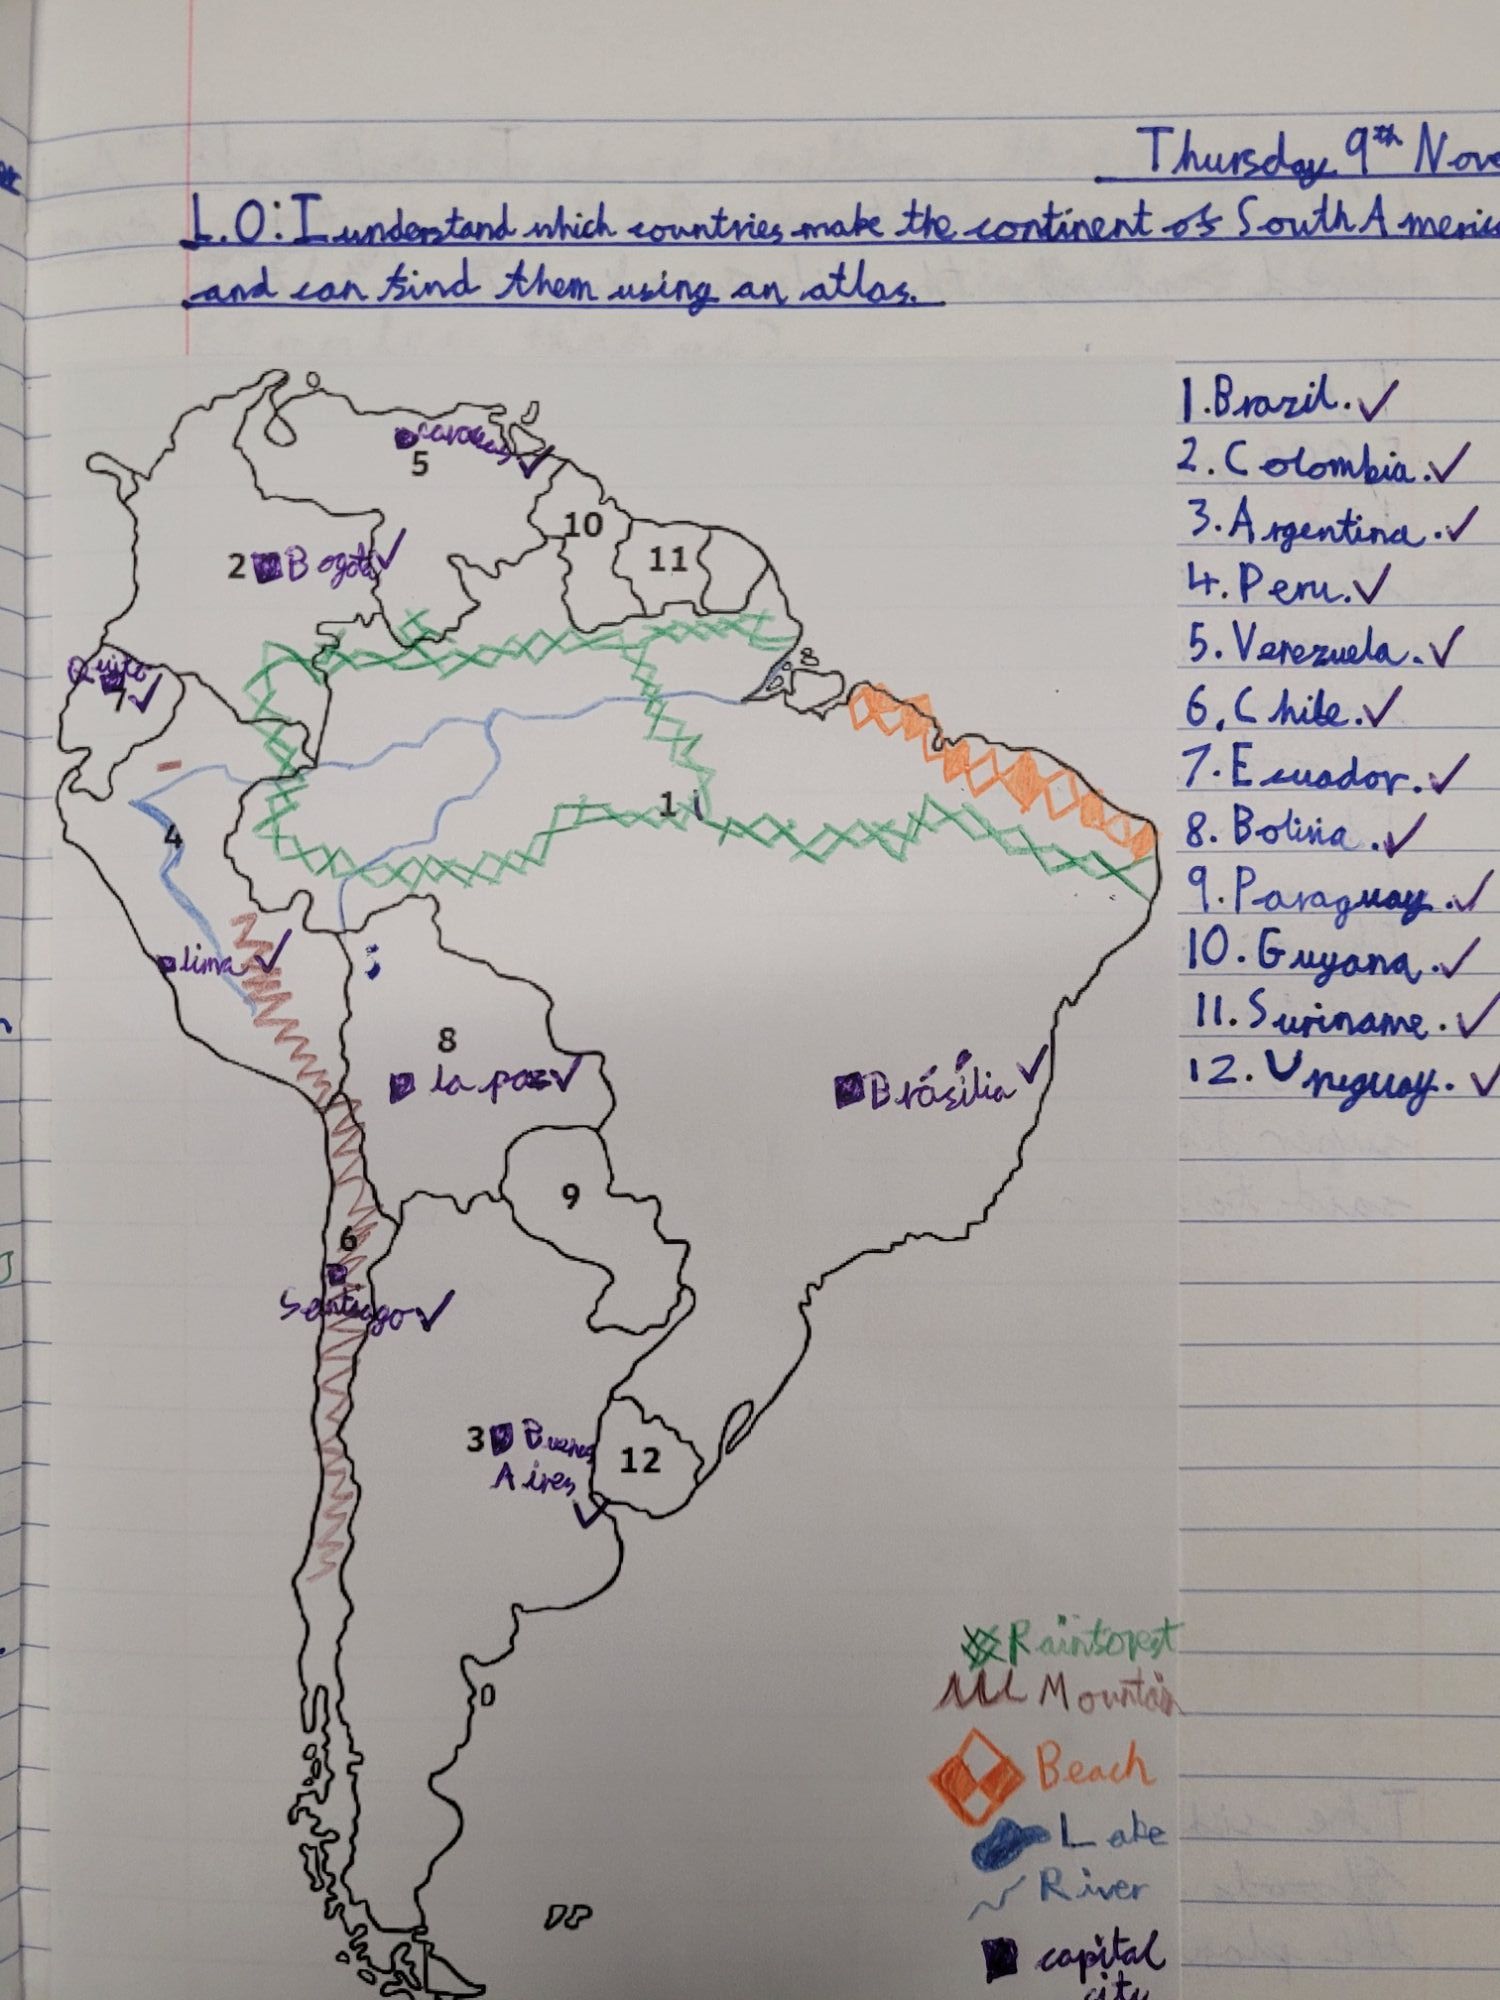 Thursday 9th Nove
L.O: I understand which countries make the continent of South America
and can find them using an atlas.
1. Brazil.
2. Colombia.
3. Argentina.
4. Peru.
5. Verezuela.
6. Chile.
7. Ecuador.
8. Bolivia.
9. Paraguay.
10. Guyana.
11. Suriname.
12. Ureguay.
caracas
5
10
11
2 Bogota
Quito
7
1
4
lima
8
la paz
Brásília
9
6
Santiago
3 Buenos
Aires
12
Rainforest
Mountain
Beach
Lake
River
capital
city